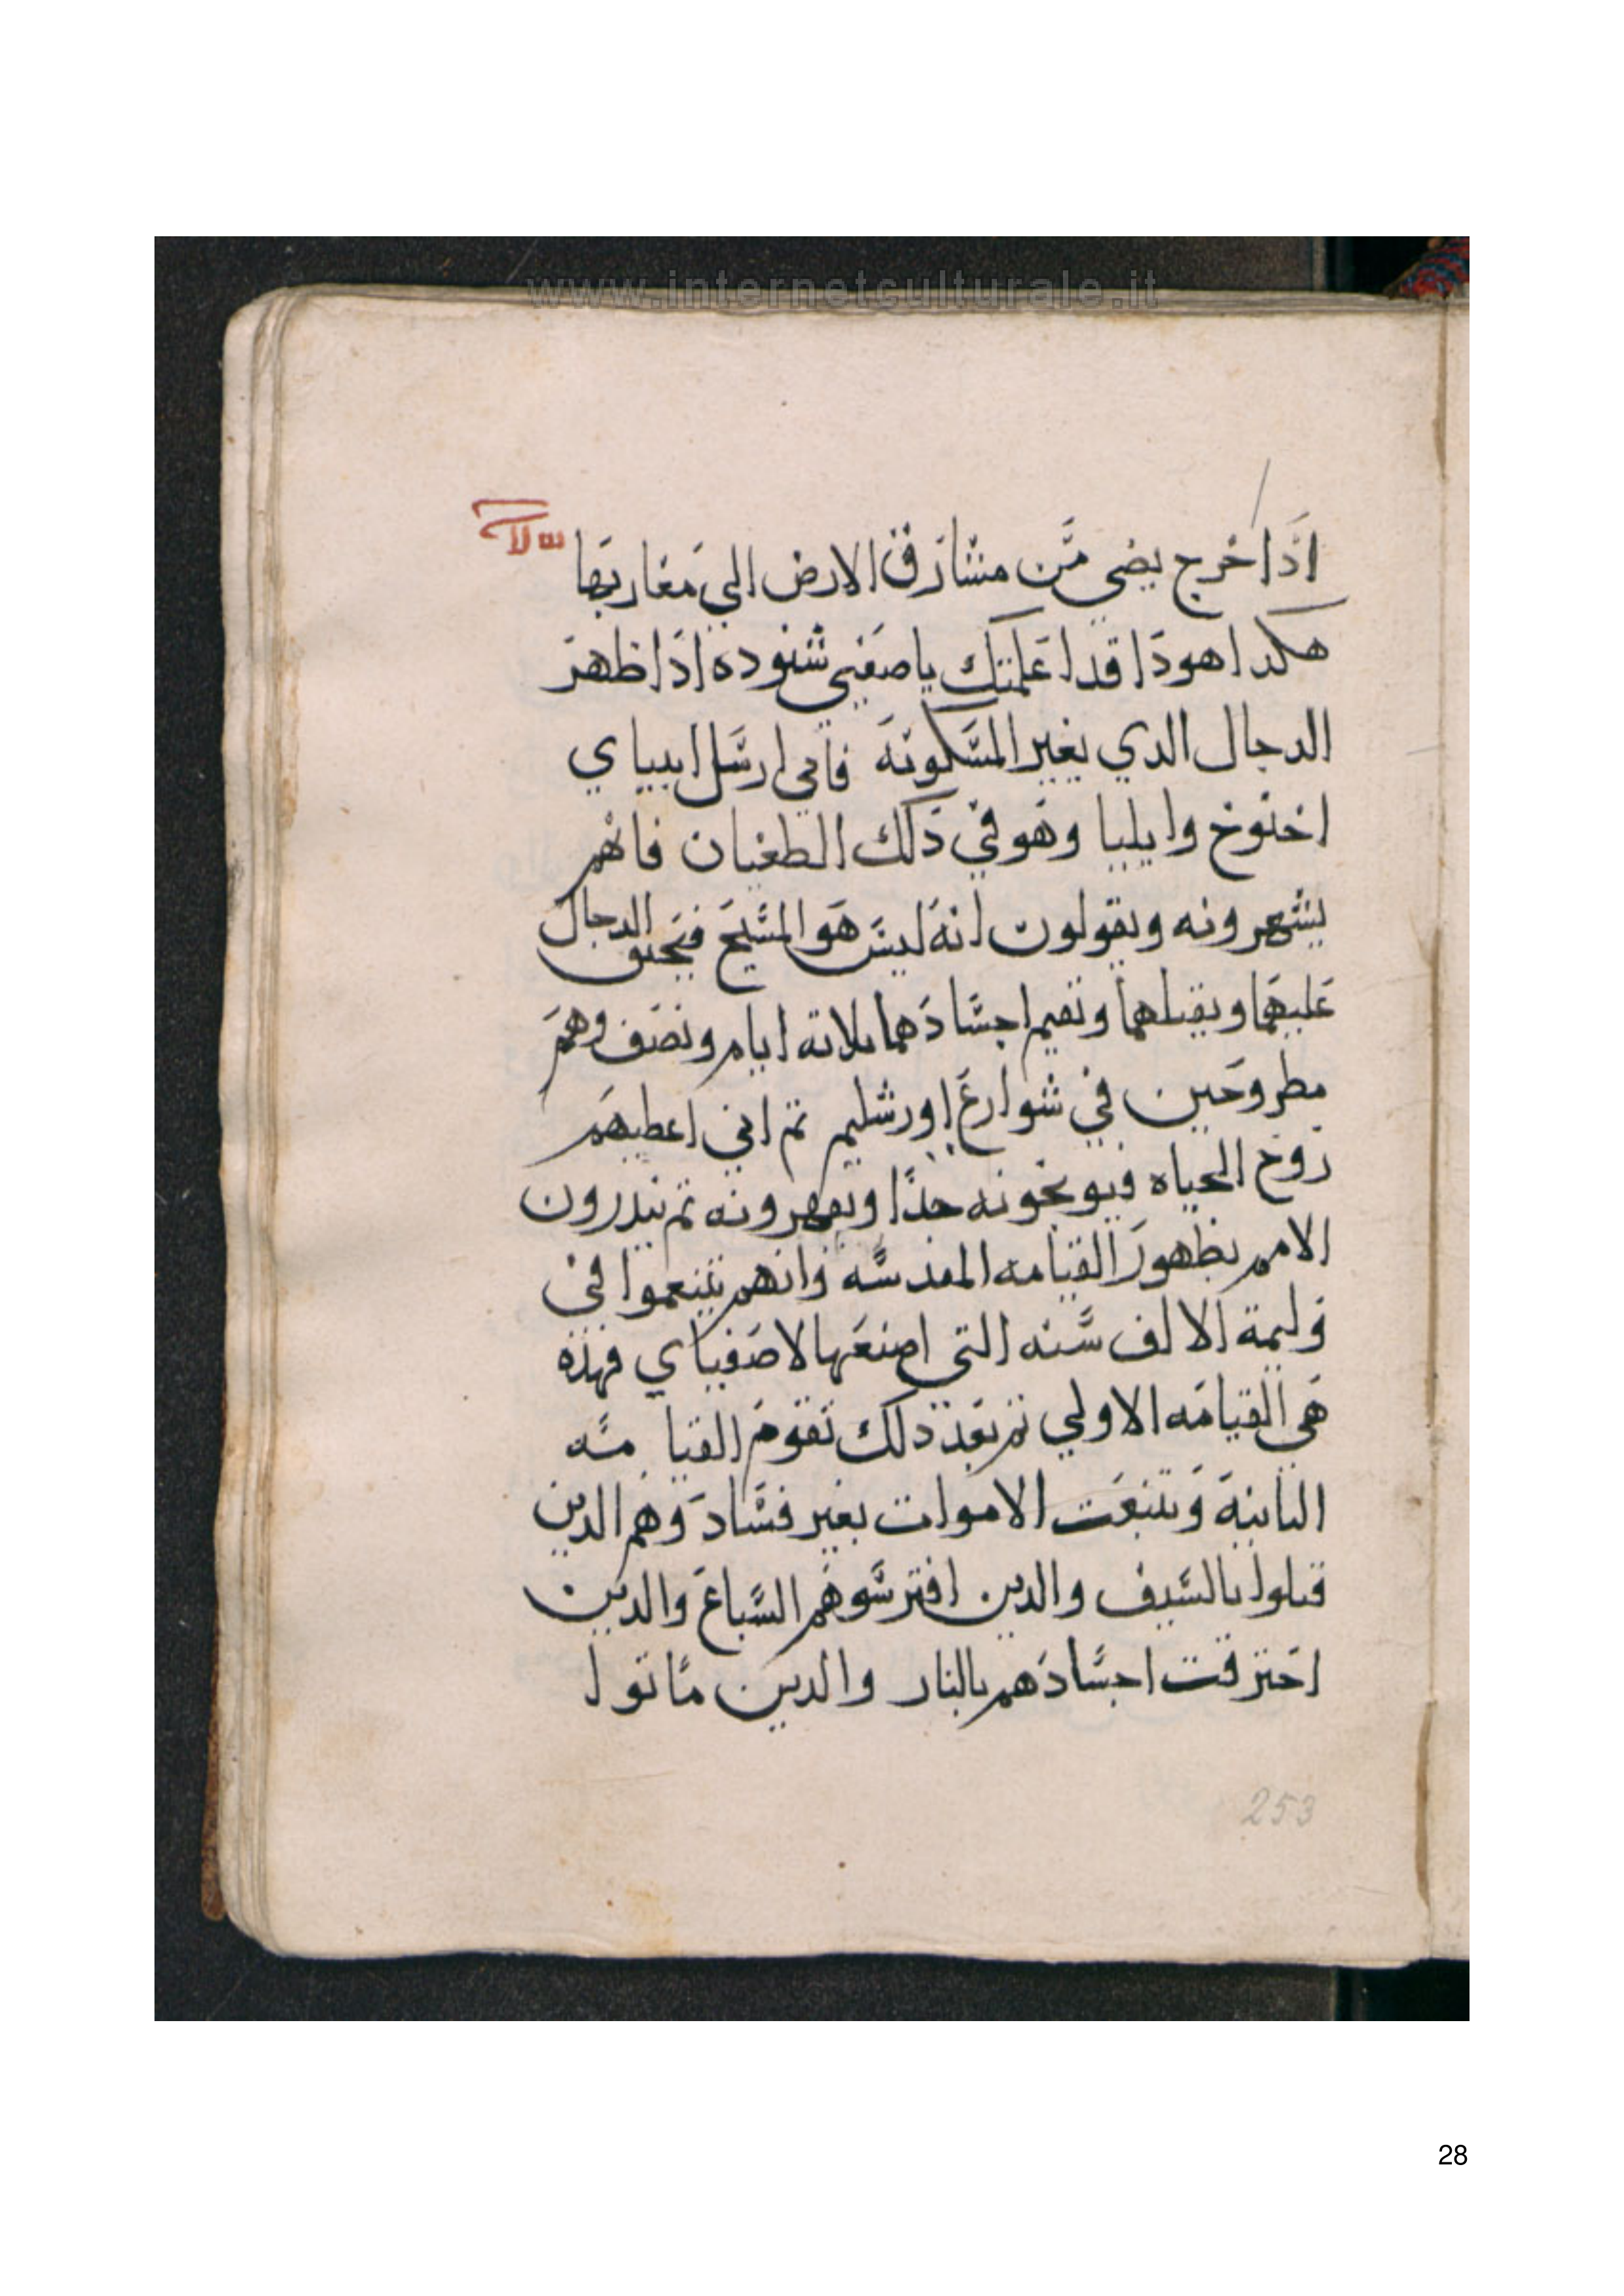 www.internetculturale.it
اذا خرج يضي من مشارق الارض الي مغاربها
هكدا هودا قد اعلمتك ياصفي شنوده اذا ظهر
الدجال الدي يغير المسكونه فاني ارسل انبياي
اخنوخ وايليا وهو في دلك الطغيان فانهم
يشهرونه ويقولون انه ليس هو المسيح فيحنق الدجال
عليهما ويقتلهما وتقيم اجسادهما تلاته ايام ونصف وهم
مطروحين في شوارع اورشليم تم اني اعطيهم
روح الحياه فيوبخونه جدا ويقهرونه تم يندرون
الامم بظهور القيامه المقدسه وانهم يتنعموا في
وليمة الالف سنه التي اصنعها لاصفياي فهذه
هي القيامه الاولي تم بعد دلك تقوم القيامه
التانية وتنبعت الاموات بغير فساد وهم الدين
قتلوا بالسيف والدين افترسوهم السباع والدين
احترقت اجسادهم بالنار والدين ماتوا
253
28